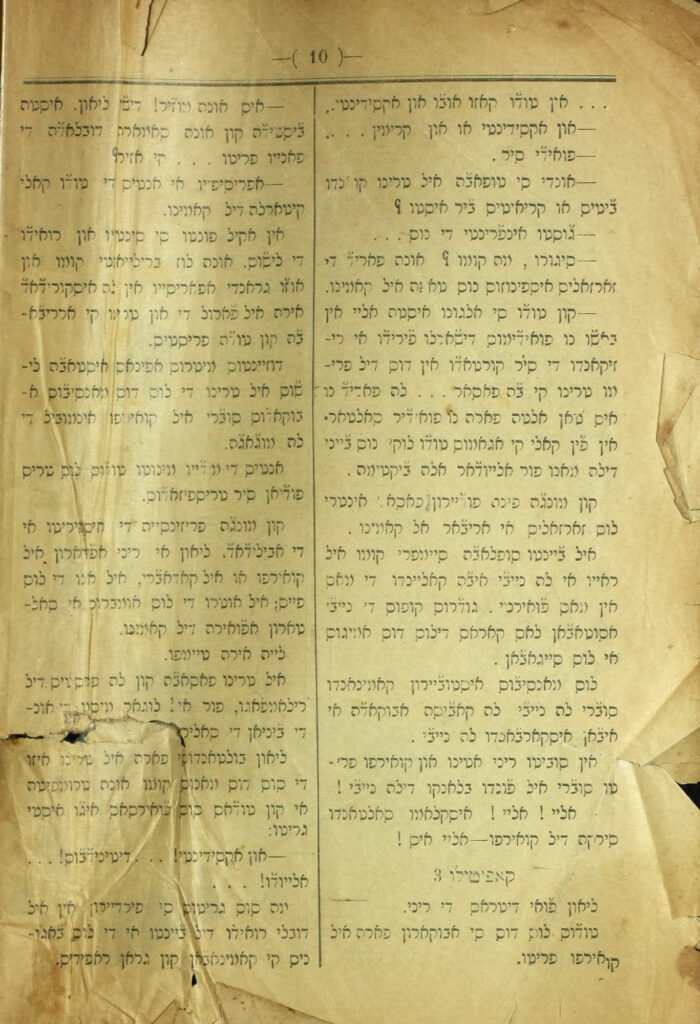 —( 10 )—
. . . אין טודו קאזו אובו און אקסידינטי.
—און אקסידינטי או און קרימין . . . .
—פואידי סיר .
—אונדי סי טופאב׳ה איל טרינו קואנדו
ב׳יטיס או קריאיטיס ב׳יר איסטו ?
—ג׳וסטו אינפ׳רינטי די נוס . . .
—סיגורו , מה קומו ? אונה פאריד׳ די
זארזאליס איספינוזוס נוס טאפה איל קאמינו.
—קון טודו סי אלגונו איסטה אליי אין
באשו נו פואידימוס דישארלו פ׳ירידו אי רי־
זיקאנדו די סיר קורטאדו אין דוס דיל פרי־
מו טרינו קי ב׳ה פאסאר . . . לה פאריד׳ נו
איס טאן אלטה פארה נו פואידיר סאלטאר.
אין פ׳ין קאלי קי אגאמוס טודו לוקי נוס ב׳ייני
דילה מאנו פור אליודאר אלה ב׳יקטימה .
קון מונג׳ה פינה פודיירון פאסאר אינטרי
לוס זארזאליס אי אריבאר אל קאמינו .
איל ב׳יינטו סופלאב׳ה סיימפרי קומו איל
ראייו אי לה נייב׳י איב׳ה קאליינדו די מאס
אין מאס פ׳ואירטי . גודרוס קופוס די נייב׳י
אסוטאב׳אן לאס קאראס דילוס דוס אמיגוס
אי לוס סייגאב׳אן .
לוס מאנסיב׳וס איסטוב׳יירון קאמינאנדו
סוב׳רי לה נייב׳י לה קאב׳יסה אבוקאדה אי
איב׳אן איסקארב׳אנדו לה נייב׳י .
אין סוביטו ריני אטינו און קואירפו פרי־
טו סוב׳רי איל פ׳ונדו בלאנקו דילה נייב׳י !
אליי ! אליי ! איסקלאמו סאלטאנדו
סירקה דיל קואירפו—אליי איס !
קאפיטולו 3
ליאון פ׳ואי דיטראס די ריני.
טודוס לוס דוס סי אבוקארון פארה איל
קואירפו פריטו.
—איס אונה מוז׳יר! דישו ליאון. איסטה
ב׳יסטידה קון אונה סאמארה דובלאדה די
פאנייו פריטו . . . קי אזיר?
—אפריסיפייו אי אנטיס די טודו קאלי
קיטארלה דיל קאמינו.
אין אקיל פונטו סי סינטייו און רואידו
די לישוס. אונה לוז ב׳רילייאנטי קומו און
אוז׳ו גראנדי אפאריסייו אין לה איסקורידאד
אירה איל פ׳ארול די און טרינו קי ארריב׳א־
ב׳ה קון טודה פריסטיס.
דוזיינטוס מיטרוס אפינאס איסטאב׳ה לי־
שוס איל טרינו די לוס דוס מאנסיב׳וס א־
בוקאדוס סוב׳רי איל קואירפו אינמוב׳יל די
לה מוג׳אג׳ה.
אנטיס די מידייו מינוטו טודוס לוס טריס
פודיאן סיר טריספיזאדוס.
קון מונג׳ה פריזינסייה די איספיריטו אי
די אבילידאד. ליאון אי ריני אפ׳ירארון איל
קואירפו או איל קאדאב׳רי, איל אונו די לוס
פייס; איל אוטרו די לוס אומברוס אי סאל־
טארון אפ׳ואירה דיל קאמינו.
לייה אירה טיימפו.
איל טרינו פאסאב׳ה קון לה פריסטיס דיל
רילאמפאגו, פור אי! לוגאר מיסמו די אונ־
די ב׳יניאן די סאליר
ליאון בולטאנדוסי פארה איל טרינו איזו
די סוס דוס מאנוס קומו אונה טרומפיטה
אי קון טודאס סוס פ׳ואירסאס איג׳ו איסטי
גריטו:
—און אקסידינטי! . . . דיטינידב׳וס! . . .
אליודו! . . .
מה סוס גריטוס סי פירדיירון אין איל
דובלי רואידו דיל ב׳יינטו אי די לוס ב׳אגו־
ניס קי קאמינאב׳אן קון גראן ראפידיס.